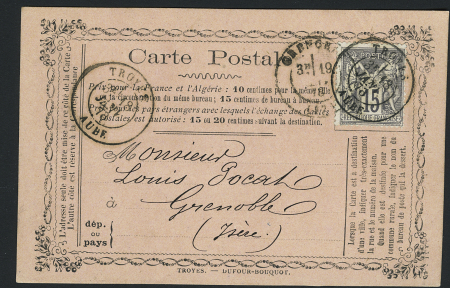 Carte Postale
Prix pour la France et l'Algérie : 10 centimes pour la même ville
ou la circonscription du même bureau; 15 centimes de bureau à bureau.
pays étrangers avec lesquels l'échange des Cartes
postales est autorisé : 15 ou 20 centimes suivant la destination.
TROYES
AUBE
GRENOBLE
3E
19
TROYES
AUBE
15
L'adresse seule doit être mise de ce côté de la Carte
L'autre côté est réservé à la correspondance
Monsieur
Louis Pocat
à
Grenoble
(Isère)
dép.
ou
pays
Lorsque la Carte est à destination
d'une ville, indiquer très-exactement
la rue et le numéro de la maison.
Quand elle est destinée à une
commune rurale, indiquer le nom du
bureau de poste qui la dessert
TROYES. — DUFOUR-BOUQUOT.